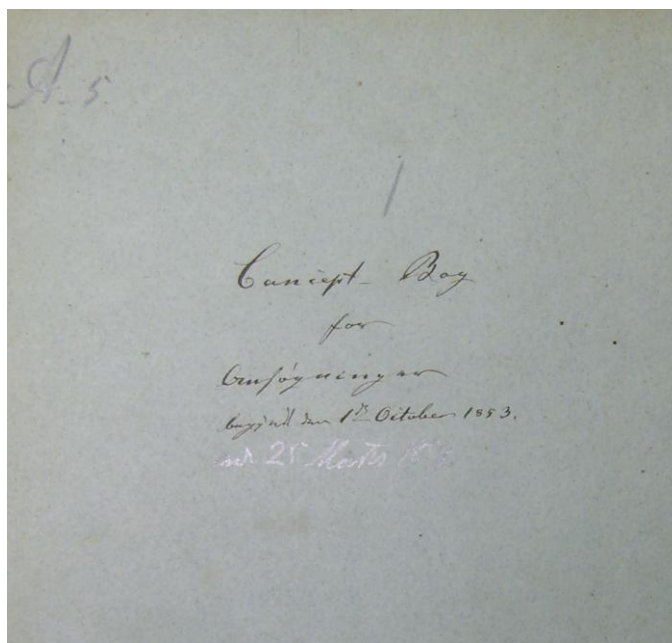 A. 5
1
Concept-Bog
for
Ansøgninger
begynd den 1ste October 1853.
25 Marts